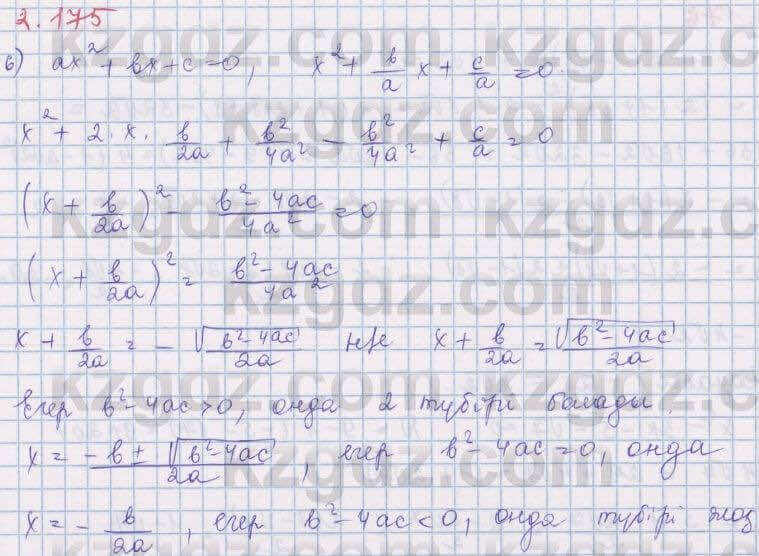 2.175
в) ax² + bx + c = 0, x² + b/a x + c/a = 0
x² + 2·x· b/2a + b²/4a² - b²/4a² + c/a = 0
(x + b/2a)² - b² - 4ac/4a² = 0
(x + b/2a)² = b² - 4ac/4a²
x + b/2a = - √b² - 4ac/2a н/е x + b/2a = √b² - 4ac/2a
Егер b² - 4ac > 0, онда 2 түбірі болады.
x = -b ± √b² - 4ac/2a, егер b² - 4ac = 0, онда
x = - b/2a, егер b² - 4ac < 0, онда түбірі жоқ
kzgdz.com